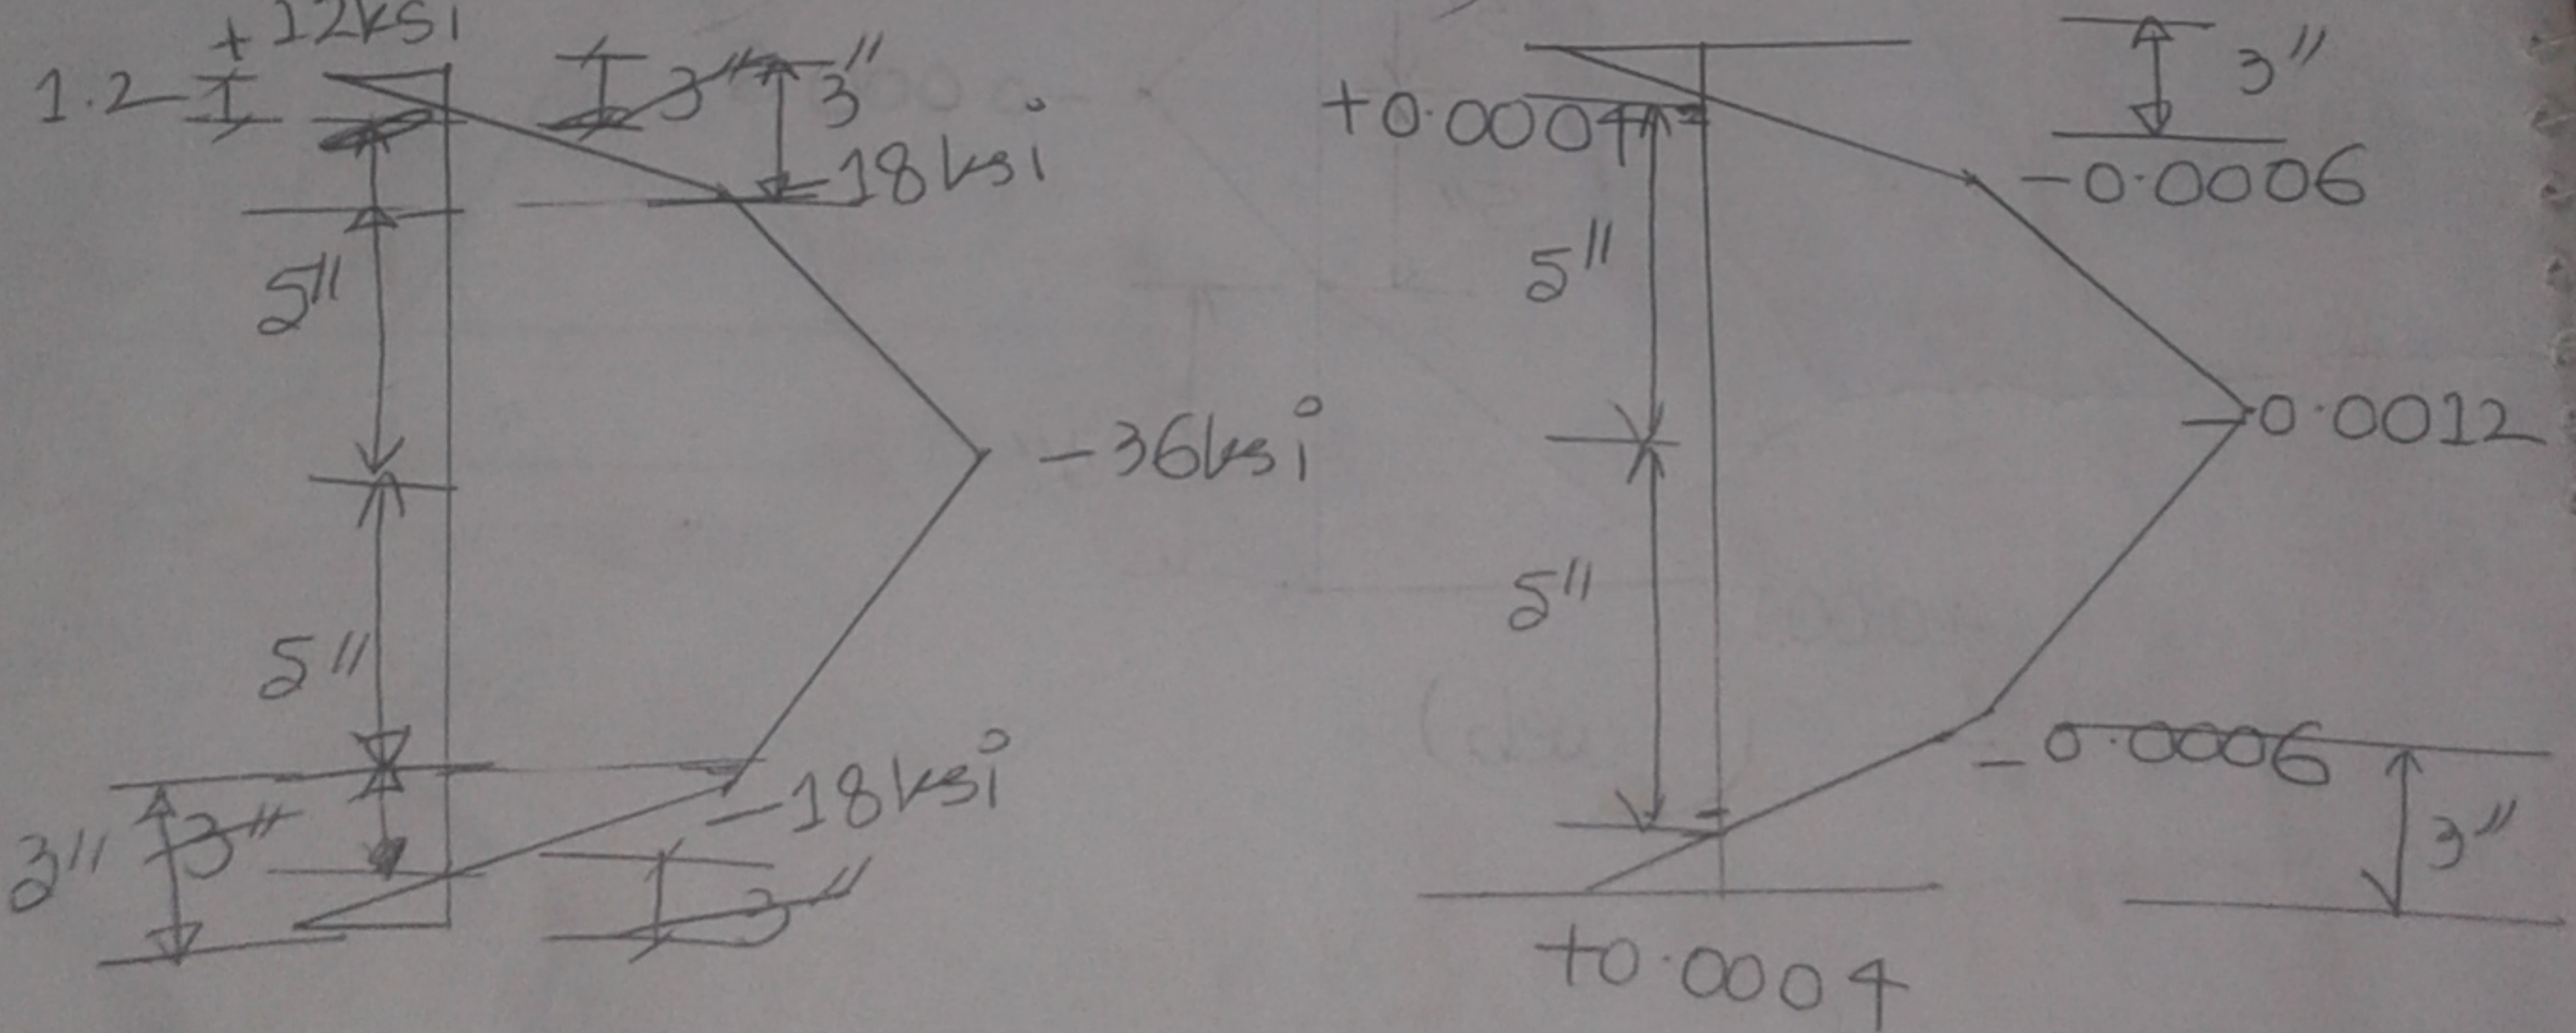 +12ksi
1.2
3"
3"
-18ksi
5"
-36ksi
5"
-18ksi
3"
3"
3"
3"
+0.0004
-0.0006
5"
-0.0012
5"
-0.0006
3"
+0.0004